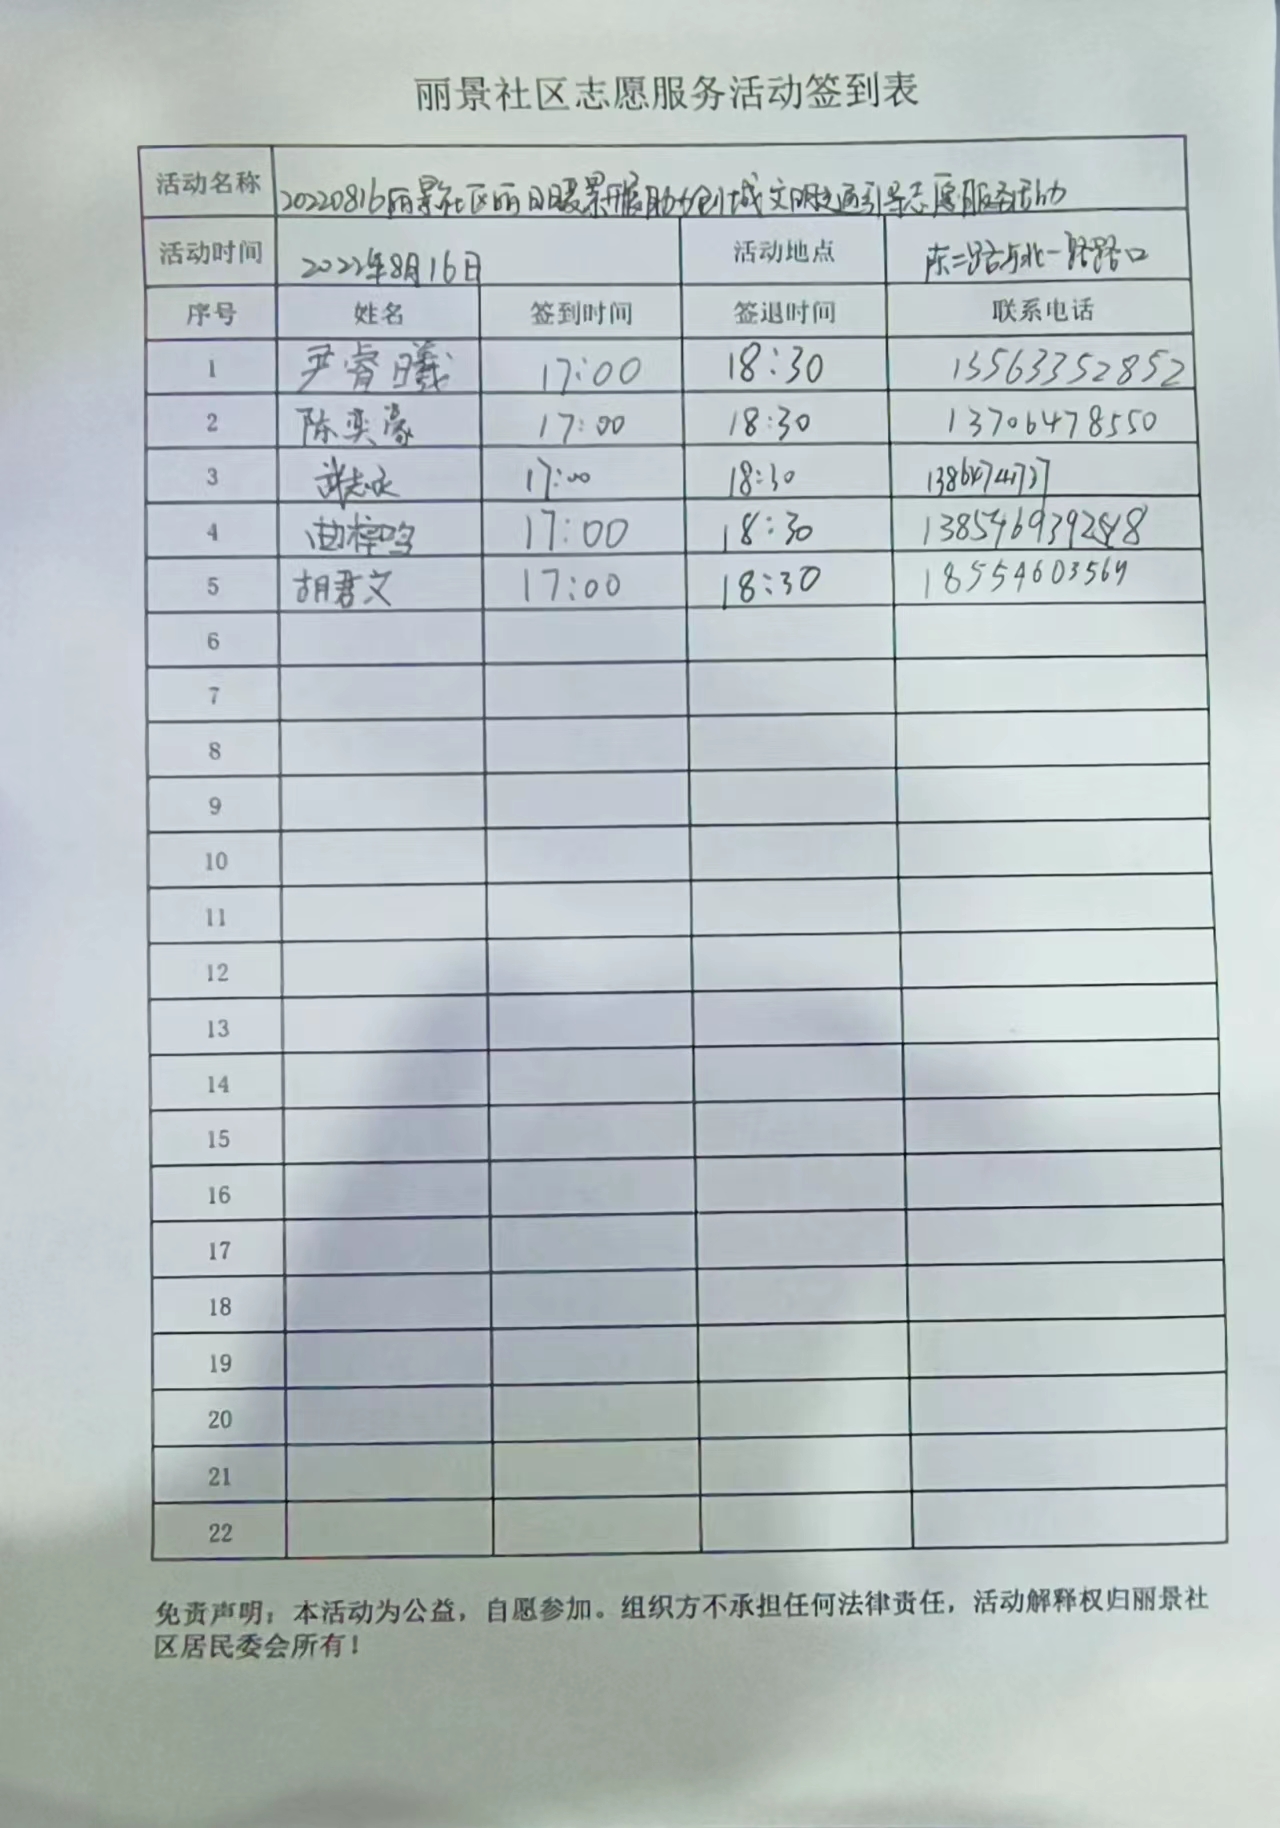 丽景社区志愿服务活动签到表
活动名称 20220816丽景社区丽日暖景开展助力创城文明交通引导志愿服务活动
活动时间 2022年8月16日 活动地点 东二路与北一路路口
序号 姓名 签到时间 签退时间 联系电话
1 尹睿曦 17:00 18:30 13563352852
2 陈奕豪 17:00 18:30 13706478550
3 17:00 18:30
4 曲梓鸣 17:00 18:30
5 胡君文 17:00 18:30 18554603569
6
7
8
9
10
11
12
13
14
15
16
17
18
19
20
21
22
免责声明：本活动为公益，自愿参加。组织方不承担任何法律责任，活动解释权归丽景社
区居民委会所有！